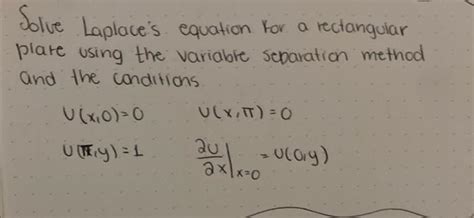 Solve Laplace's equation for a rectangular
plate using the variable separation method
and the conditions
U(x,0)=0 U(x,π)=0
U(π,y)=1 ∂U/∂x|x=0 = U(0,y)